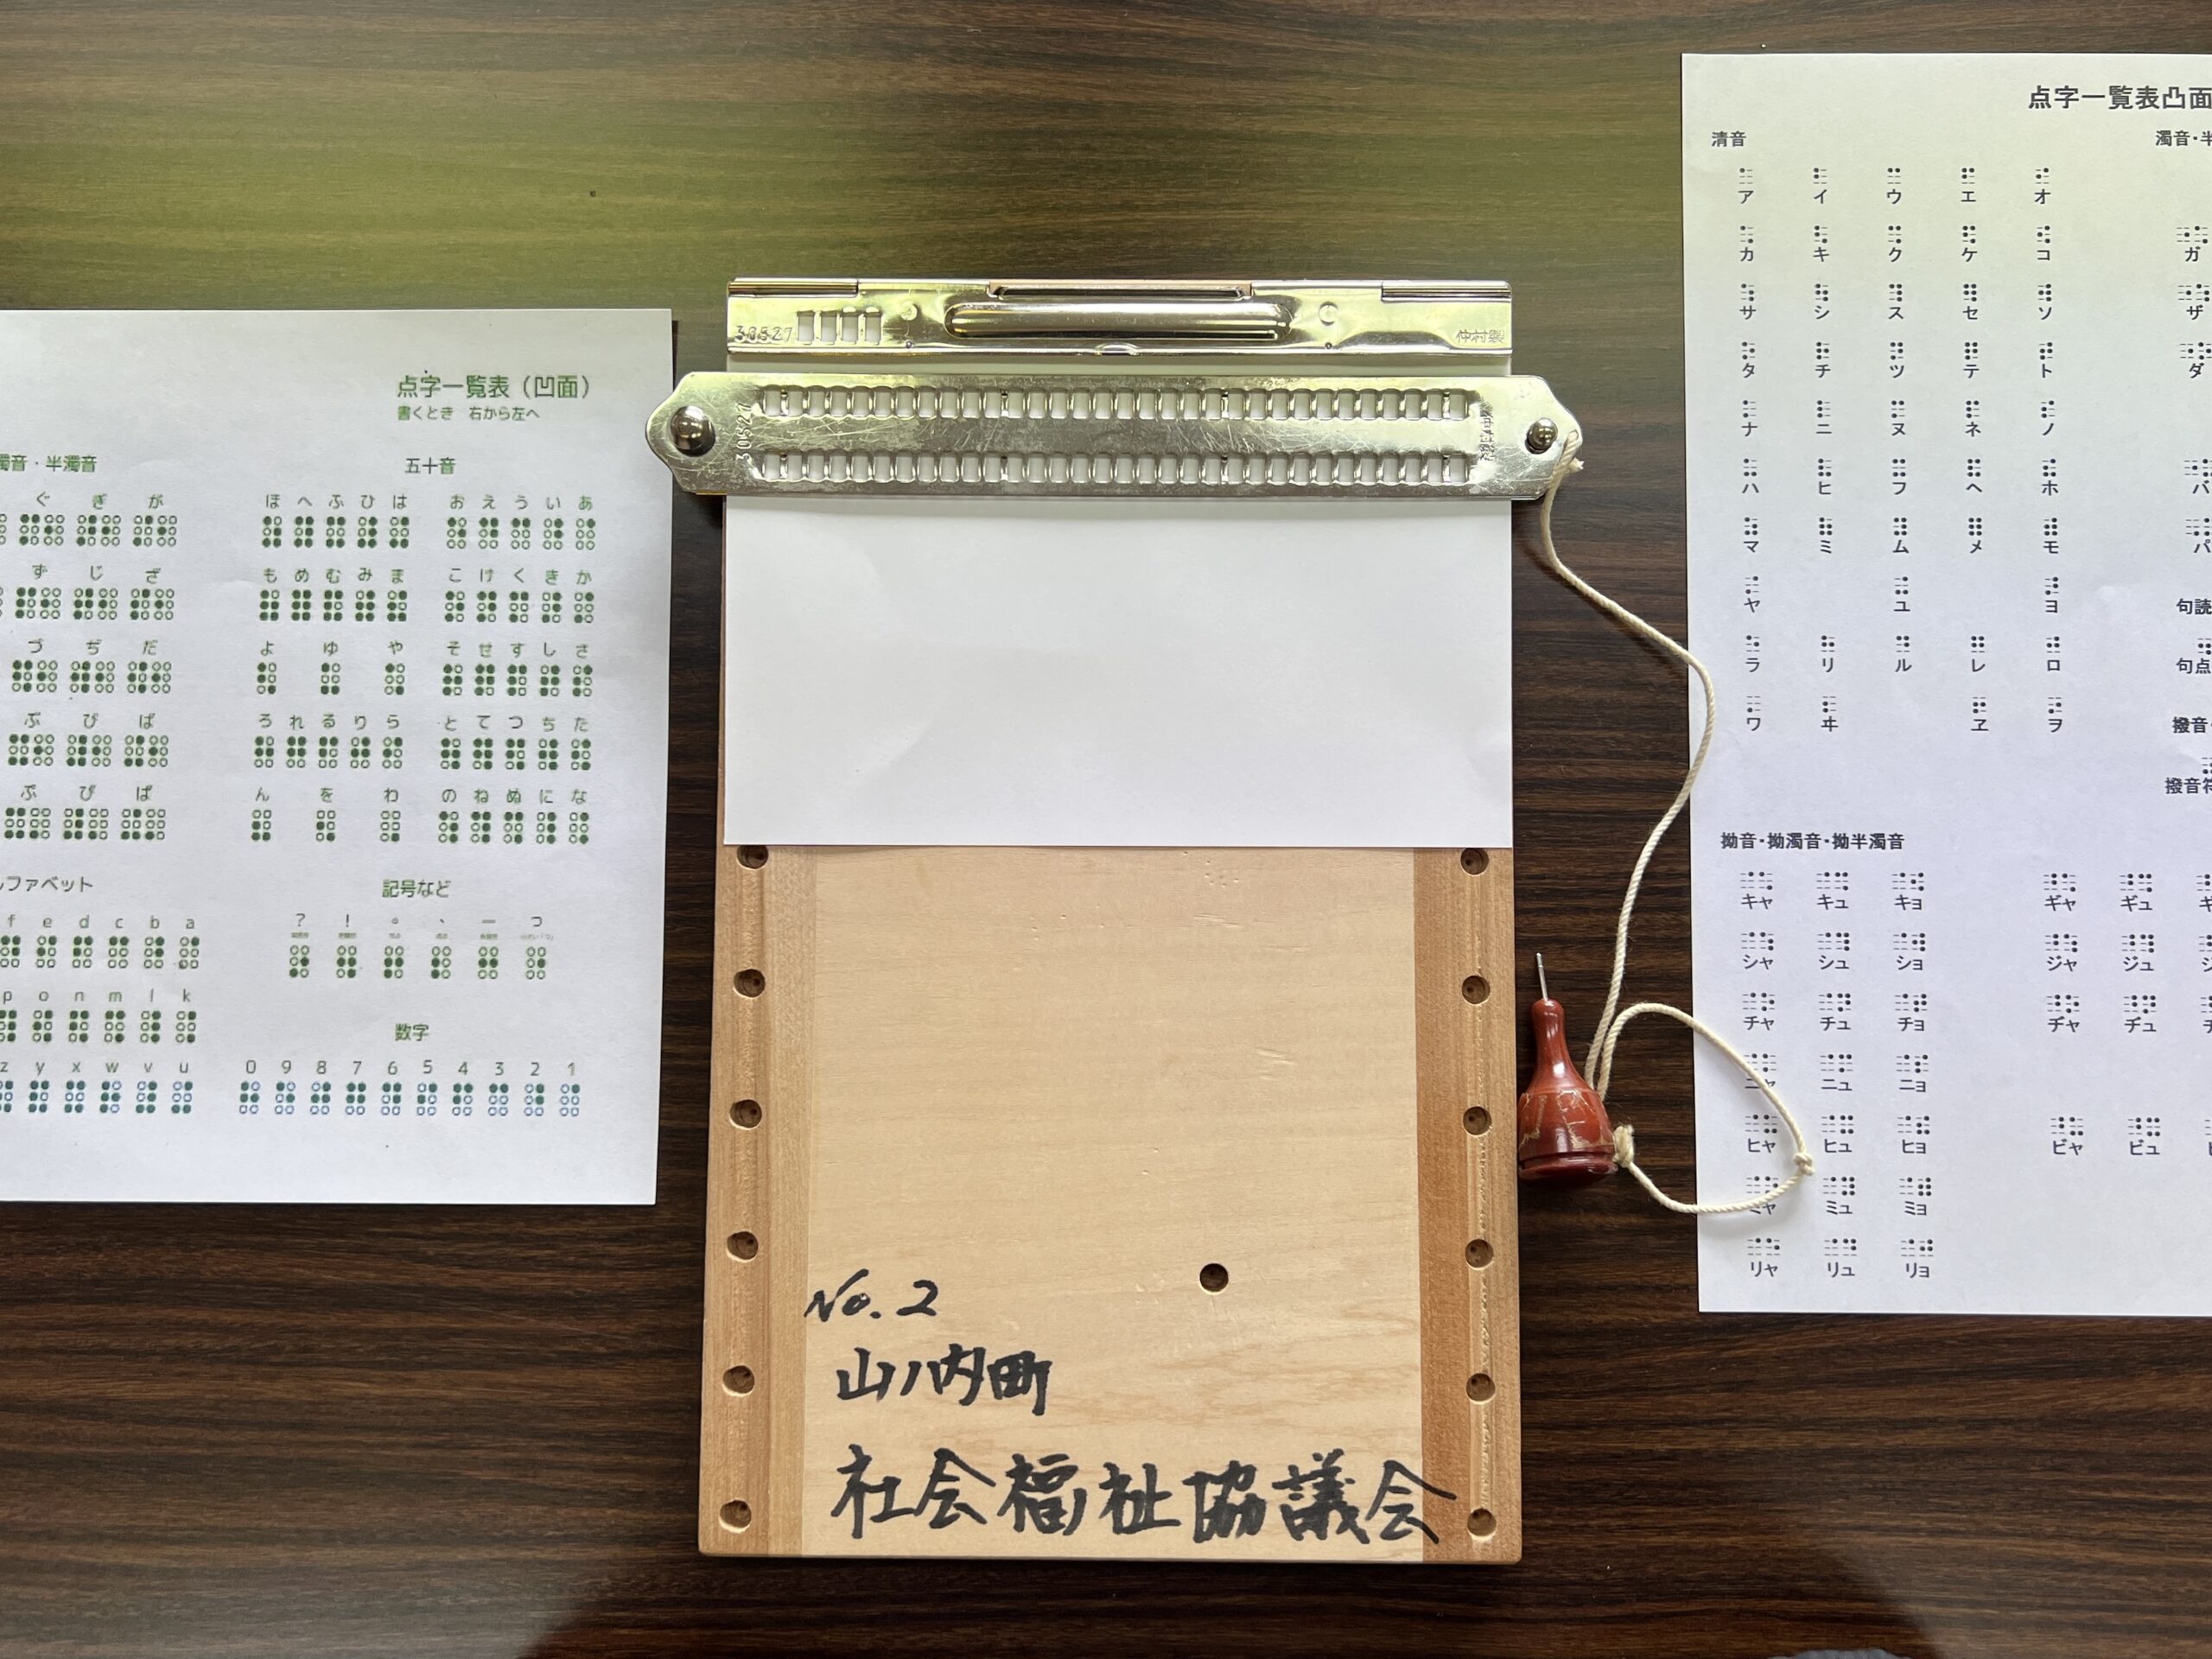 点字一覧表（凹面）
書くとき 右から左へ
濁音・半濁音
五十音
ぐ ぎ が
ほ へ ふ ひ は
お え う い あ
ず じ ざ
も め む み ま
こ け く き か
づ ぢ だ
よ ゆ や
そ せ す し さ
ぶ び ば
ろ れ る り ら
と て つ ち た
ぷ ぴ ぱ
ん を わ
の ね ぬ に な
ファベット
記号など
f e d c b a
? ! 。 、 ー っ
p o n m l k
数字
z y x w v u
0 9 8 7 6 5 4 3 2 1
30527
仲村製
30527
No.2
山ノ内町
社会福祉協議会
点字一覧表凸面
清音
濁音・半
ア イ ウ エ オ
カ キ ク ケ コ
ガ
サ シ ス セ ソ
ザ
タ チ ツ テ ト
ダ
ナ ニ ヌ ネ ノ
ハ ヒ フ ヘ ホ
バ
マ ミ ム メ モ
パ
ヤ ユ ヨ
句読
ラ リ ル レ ロ
句点
ワ ヰ ヱ ヲ
撥音・
撥音符
拗音・拗濁音・拗半濁音
キャ キュ キョ
ギャ ギュ
シャ シュ ショ
ジャ ジュ
チャ チュ チョ
ヂャ ヂュ
ニャ ニュ ニョ
ヒャ ヒュ ヒョ
ビャ ビュ
ミャ ミュ ミョ
リャ リュ リョ